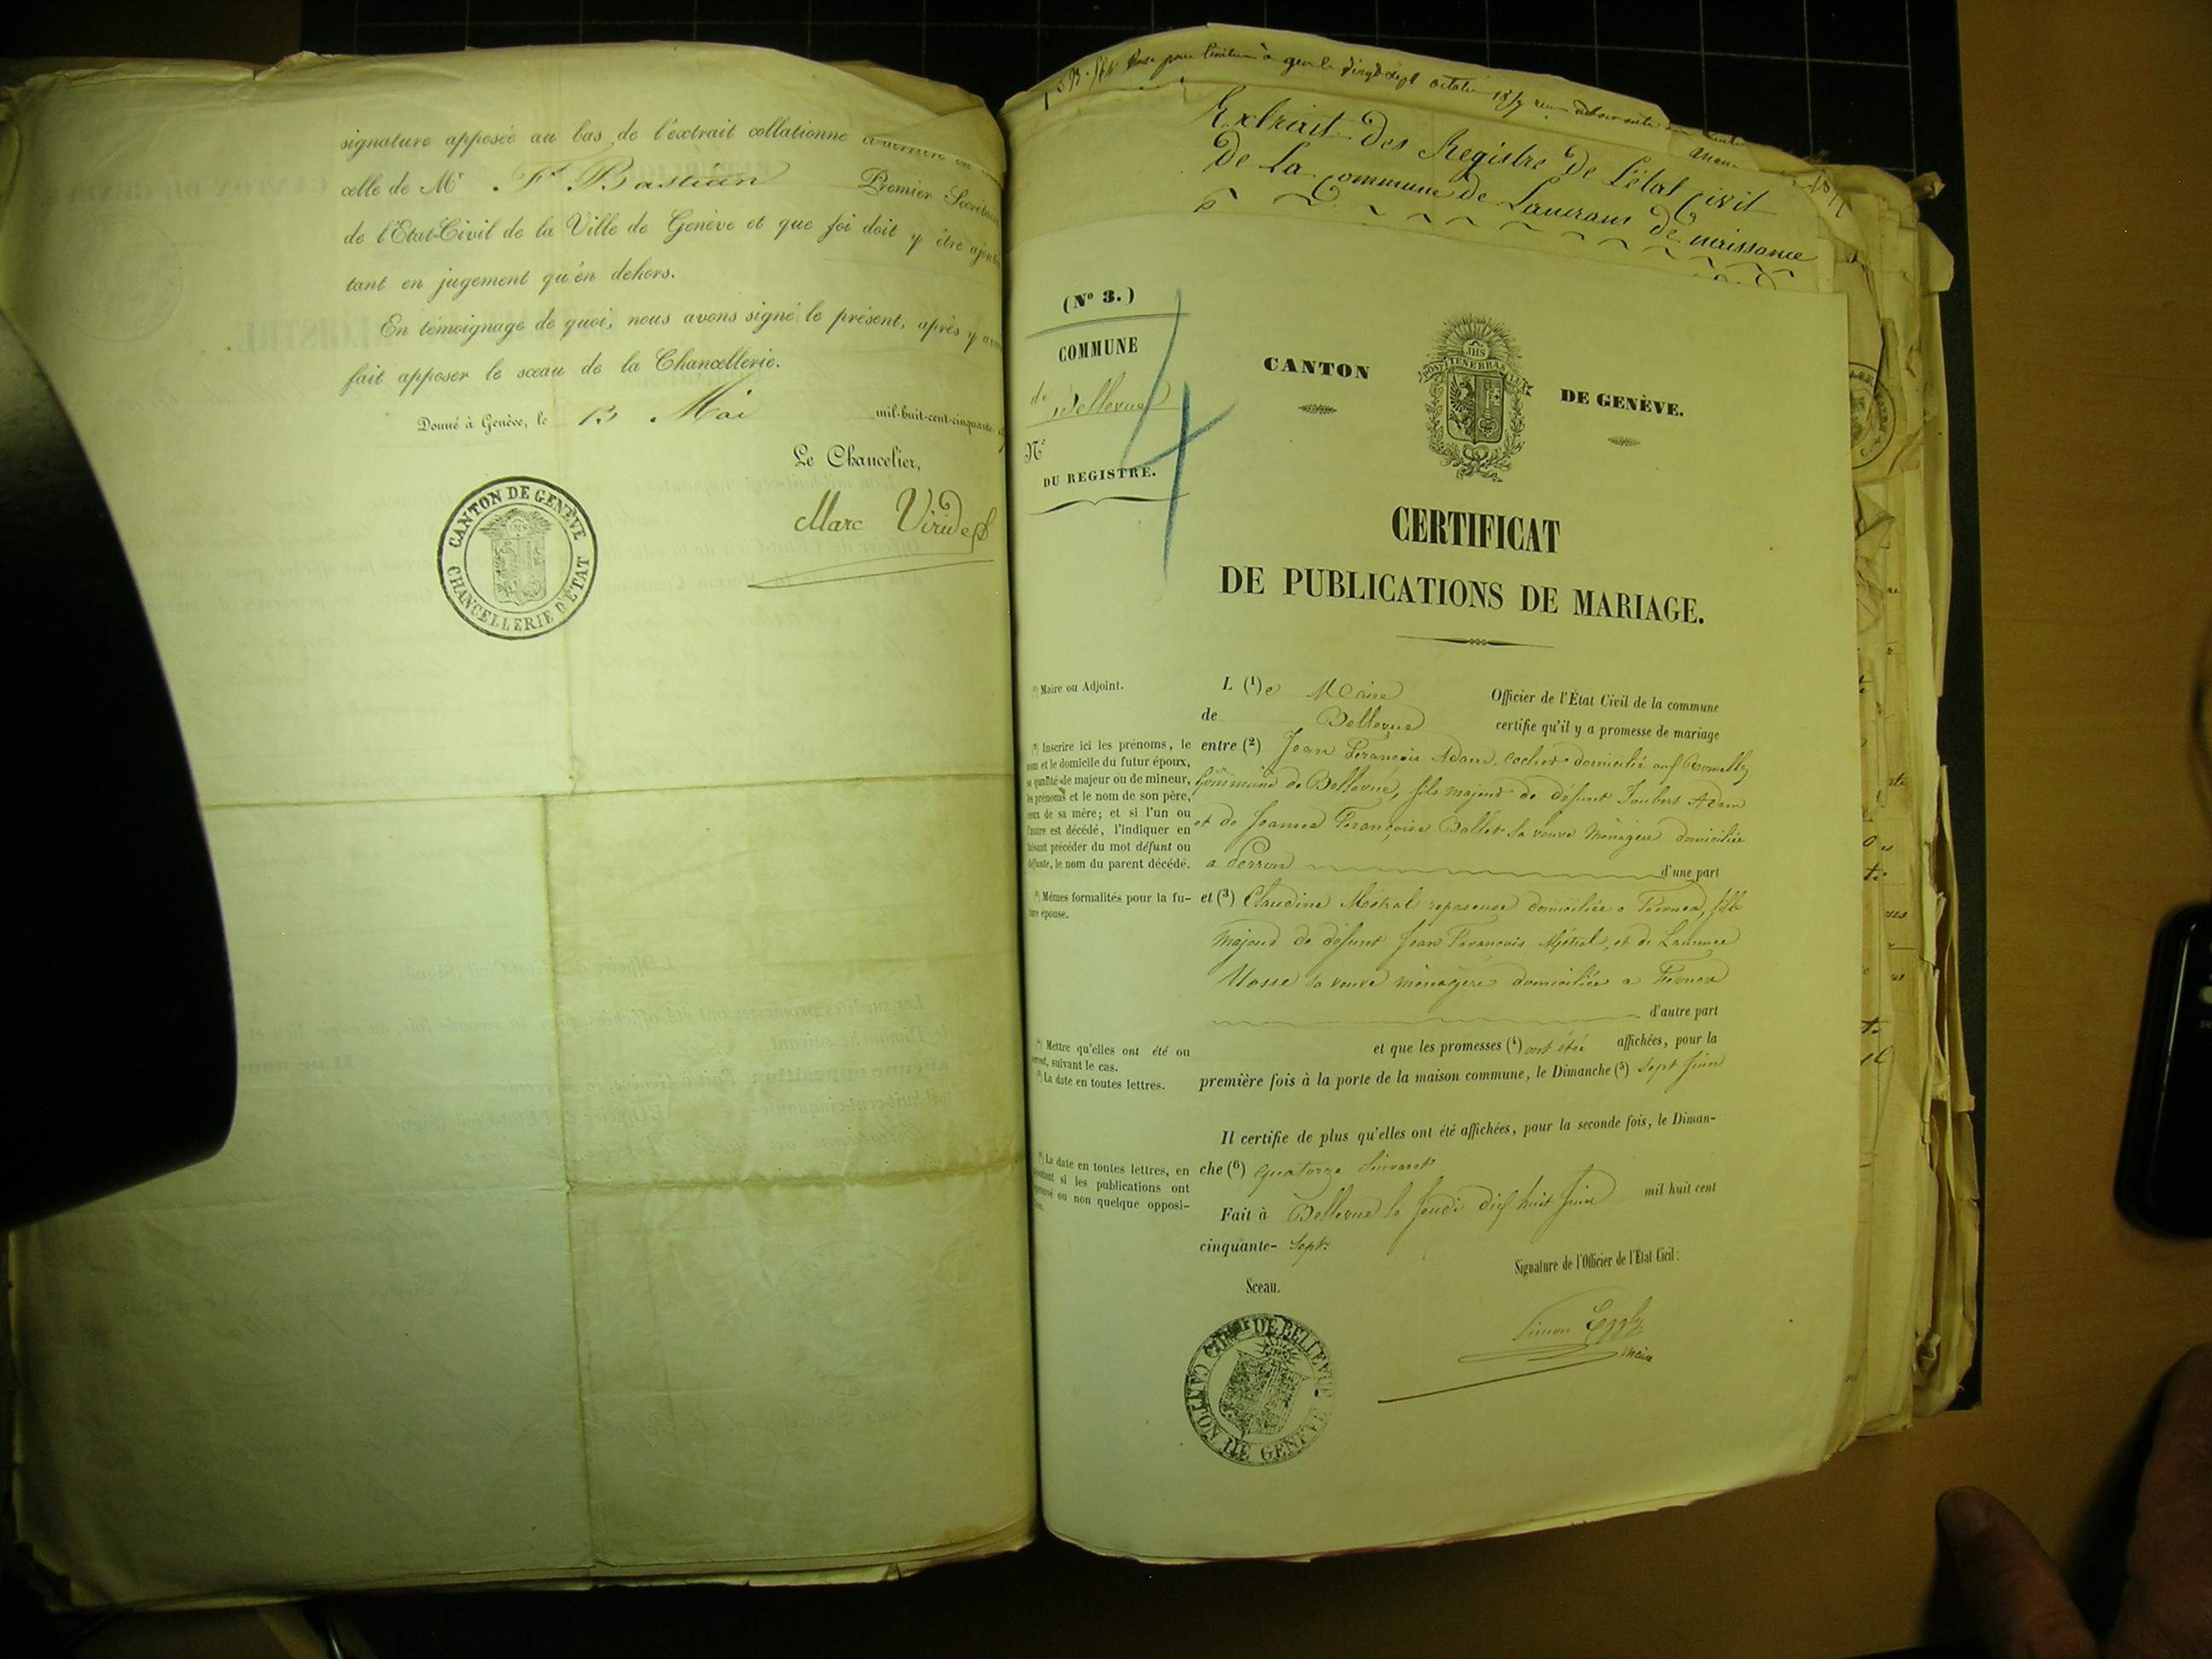 signature apposée au bas de l'extrait collationné
celle de Mr F. Bastian Premier Secrétaire
de l'Etat-Civil de la Ville de Genève et que foi doit y être ajoutée
tant en jugement qu'en dehors.
En témoignage de quoi, nous avons signé le présent, après y avoir
fait apposer le sceau de la Chancellerie.
Donné à Genève, le 13 Mai mil-huit-cent-cinquante
Le Chancelier,
Marc Viridet
CANTON DE GENÈVE
CHANCELLERIE D'ÉTAT
Extrait des Registre de L'état civil
de La Commune de de naissance
(No 3.)
COMMUNE
de Bellevue
No 4
DU REGISTRE.
CANTON DE GENÈVE.
POST TENEBRAS LUX
JHS
CERTIFICAT
DE PUBLICATIONS DE MARIAGE.
(1) Maire ou Adjoint.
L (1) e Maire Officier de l'État Civil de la commune
de Bellevue certifie qu'il y a promesse de mariage
(2) Inscrire ici les prénoms, le
nom et le domicile du futur époux,
sa qualité de majeur ou de mineur,
les prénoms et le nom de son père,
ceux de sa mère; et si l'un ou
l'autre est décédé, l'indiquer en
faisant précéder du mot défunt ou
défunte, le nom du parent décédé.
entre (2) Jean François Adam, cocher domicilié
Commune de Bellevue, fils majeur de défunt Joubert Adam
et de Jeanne Françoise Ballet sa veuve ménagère domiciliée
a d'une part
(3) Mêmes formalités pour la fu-
ture épouse.
et (3) Claudine Métral repasseuse domiciliée a Fernex, fille
majeur de défunt Jean François Métral, et de Laurence
Mosse sa veuve ménagère domiciliée a Fernex
d'autre part
(4) Mettre qu'elles ont été ou
seront, suivant le cas.
(5) La date en toutes lettres.
et que les promesses (4) ont étée affichées, pour la
première fois à la porte de la maison commune, le Dimanche (5) Sept Juin
Il certifie de plus qu'elles ont été affichées, pour la seconde fois, le Diman-
(6) La date en toutes lettres, en
ajoutant si les publications ont
éprouvé ou non quelque opposi-
tion.
che (6) quatorze suivant
Fait à Bellevue le Jeudi dix huit Juin mil huit cent
cinquante- sept.
Signature de l'Officier de l'État Civil:
Sceau.
Simon
maire
COMMUNE DE BELLEVUE
CANTON DE GENÈVE